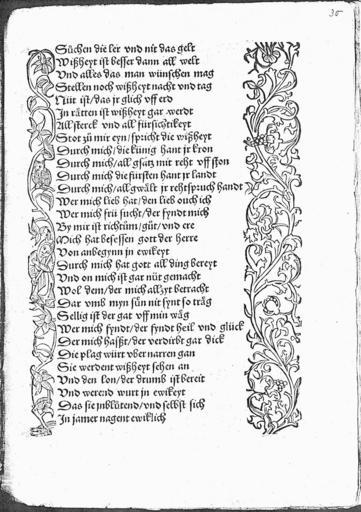 35
Suͦchen die ler vnd nit das gelt
Wißheyt ist besser dann all welt
Vnd alles das man wünschen mag
Stellen noch wißheyt nacht vnd tag
Nüt ist/das jr glich vff erd
In rätten ist wißheyt gar werdt
All sterck vnd all fürsichtikeyt
Stot zuͦ mir eyn/spricht die wißheyt
Durch mich/die künig hant jr kron
Durch mich/all gsatz mit reht vff ston
Durch mich die fürsten hant jr landt
Durch mich/all gwält jr rehtspruch handt
Wer mich lieb hat/den lieb ouch ich
Wer mich frü suͦcht/der fyndt mich
By mir ist richtüm/guͦt/vnd ere
Mich hat besessen gott der herre
Von anbegynn jn ewikeyt
Durch mich hat gott all ding bereyt
Vnd on mich ist gar nüt gemacht
Wol dem/der mich allzyt betracht
Dar vmb myn sün nit synt so träg
Sellig ist der gat vff min wäg
Wer mich fyndt/der fyndt heil vnd glück
Der mich haßt/der verdirbt gar dick
Die plag würt vber narren gan
Sie werdent wißheyt sehen an
Vnd den lon/der drumb ist bereit
Vnd werend wurt jn ewikeyt
Das sie jnbluͦtend/vnd selbst sich
In jamer nagent ewiklich